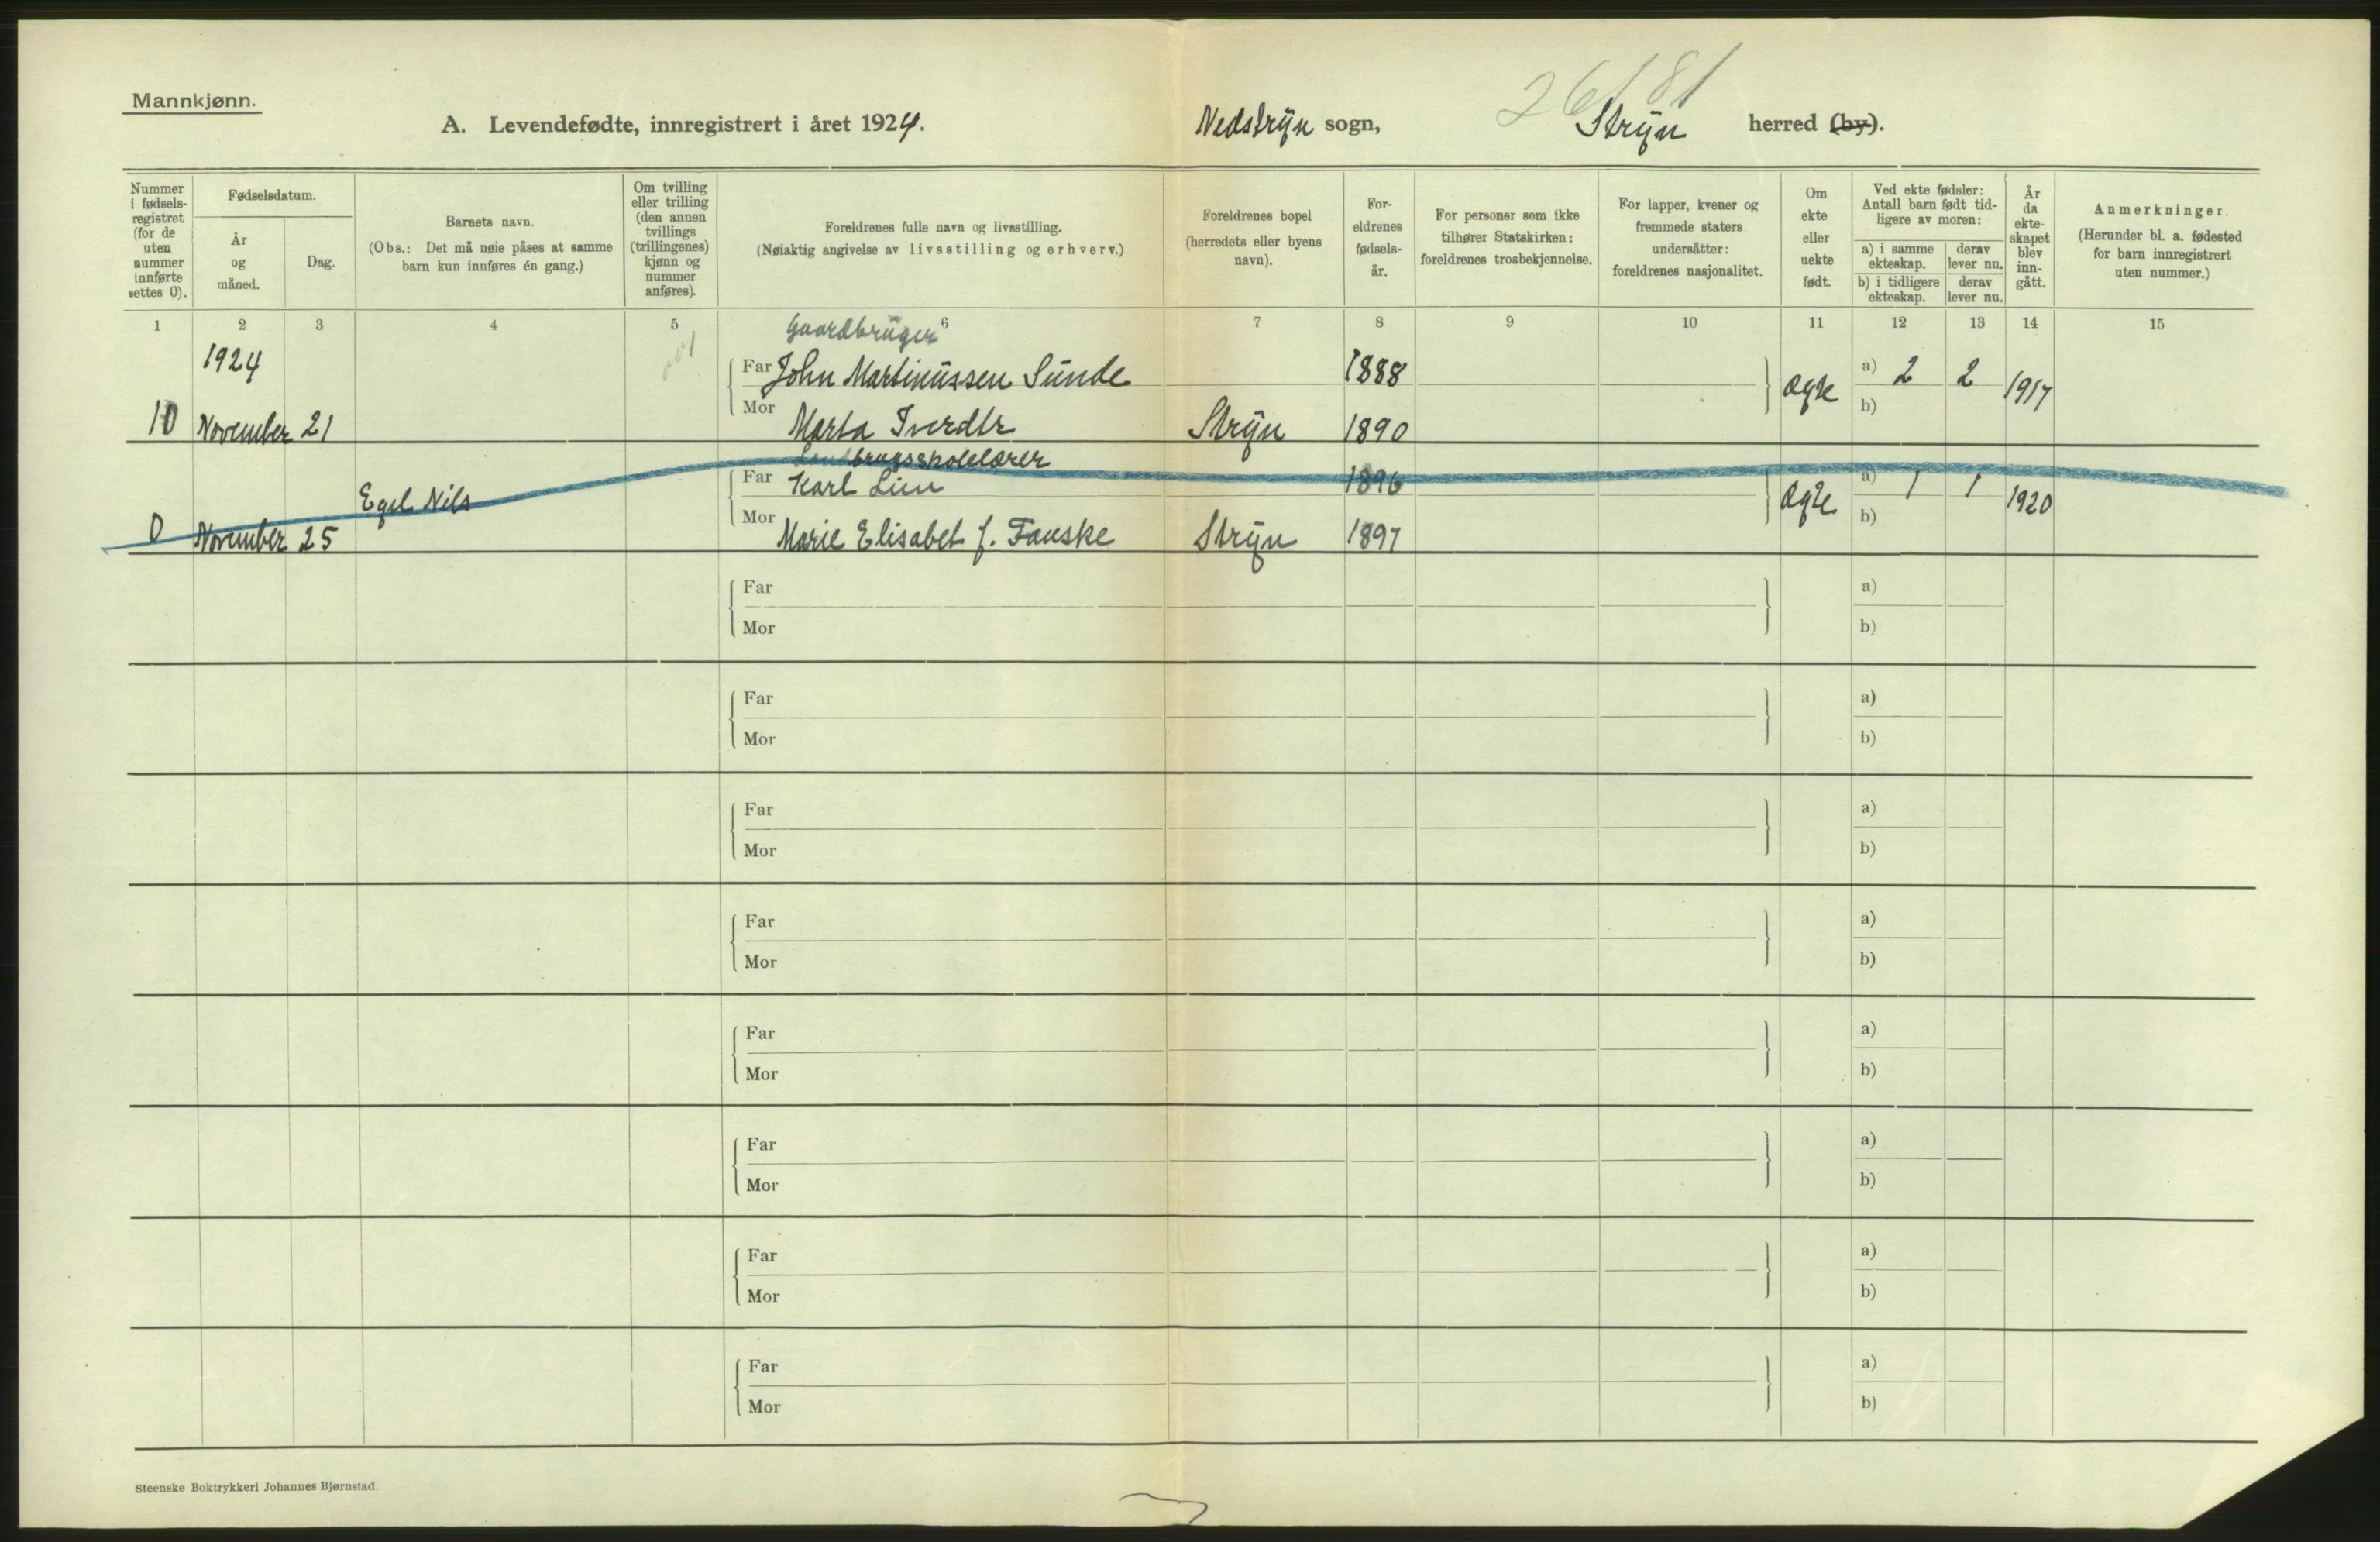 Mannkjønn.
26/81
A. Levendefødte, innregistrert i året 1924.
Nedstryn sogn, Stryn herred (by).
Nummer
i fødsels-
registret
(for de
uten
nummer
innførte
settes 0).
Fødselsdatum.
År
og
måned.
Dag.
Barnets navn.
(Obs.: Det må nøie påses at samme
barn kun innføres én gang.)
Om tvilling
eller trilling
(den annen
tvillings
(trillingenes)
kjønn og
nummer
anføres).
Foreldrenes fulle navn og livsstilling.
(Nøiaktig angivelse av livsstilling og erhverv.)
Foreldrenes bopel
(herredets eller byens
navn).
For-
eldrenes
fødsels-
år.
For personer som ikke
tilhører Statskirken:
foreldrenes trosbekjennelse.
For lapper, kvener og
fremmede staters
undersåtter:
foreldrenes nasjonalitet.
Om
ekte
eller
uekte
født.
Ved ekte fødsler:
Antall barn født tid-
ligere av moren:
a) i samme
ekteskap.
derav
lever nu.
b) i tidligere
ekteskap.
derav
lever nu.
År
da
ekte-
skapet
blev
inn-
gått.
Anmerkninger.
(Herunder bl. a. fødested
for barn innregistrert
uten nummer.)
1 2 3 4 5 6 7 8 9 10 11 12 13 14 15
Gaardbruger
1924 Far John Martinussen Sunde 1888 ægte a) 2 2 1917
10 November 21 Mor Marta Iverdtr Stryn 1890 b)
Landbrugsskolelærer
Egil Nils Far Karl Lien 1896 ægte a) 1 1 1920
0 November 25 Mor Marie Elisabet f. Fauske Stryn 1897 b)
Far a)
Mor b)
Far a)
Mor b)
Far a)
Mor b)
Far a)
Mor b)
Far a)
Mor b)
Far a)
Mor b)
Far a)
Mor b)
Far a)
Mor b)
Steenske Boktrykkeri Johannes Bjørnstad.